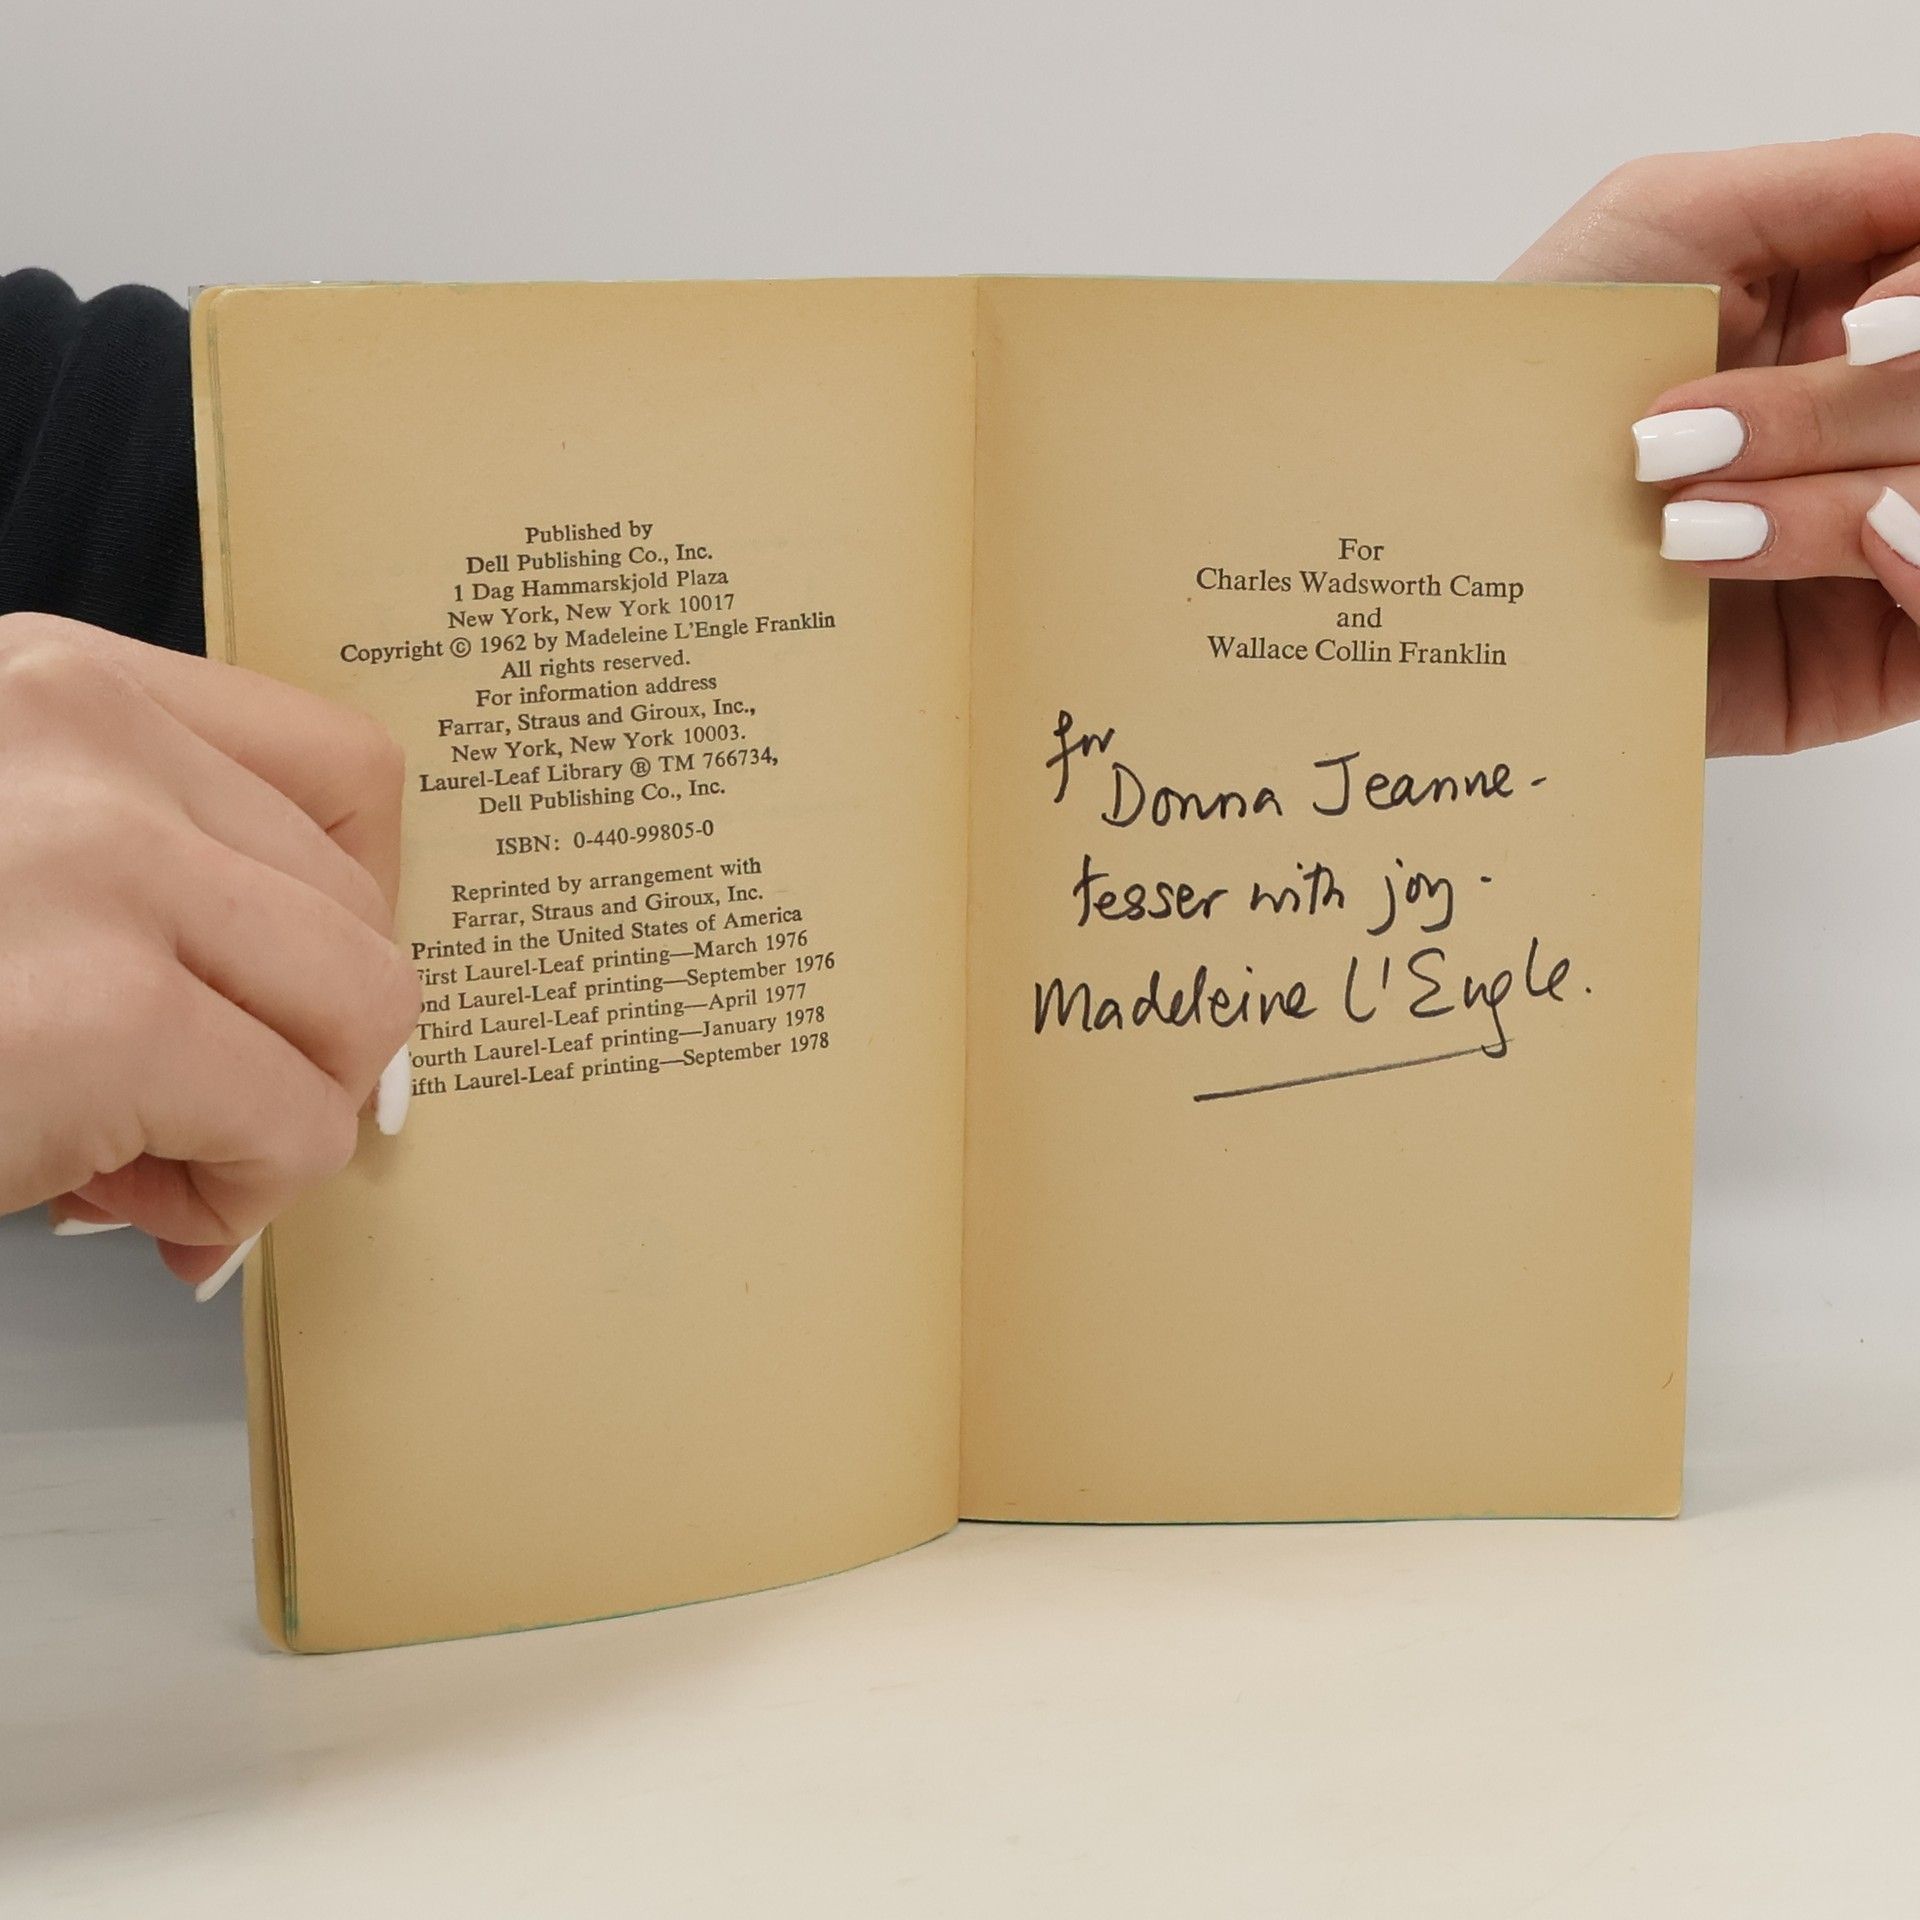 Published by
Dell Publishing Co., Inc.
1 Dag Hammarskjold Plaza
New York, New York 10017
Copyright © 1962 by Madeleine L'Engle Franklin
All rights reserved.
For information address
Farrar, Straus and Giroux, Inc.,
New York, New York 10003.
Laurel-Leaf Library ® TM 766734,
Dell Publishing Co., Inc.
ISBN: 0-440-99805-0
Reprinted by arrangement with
Farrar, Straus and Giroux, Inc.
Printed in the United States of America
First Laurel-Leaf printing—March 1976
Laurel-Leaf printing—September 1976
Third Laurel-Leaf printing—April 1977
Laurel-Leaf printing—January 1978
Laurel-Leaf printing—September 1978
For
Charles Wadsworth Camp
and
Wallace Collin Franklin
for
Donna Jeanne-
tesser with joy-
Madeleine L'Engle.